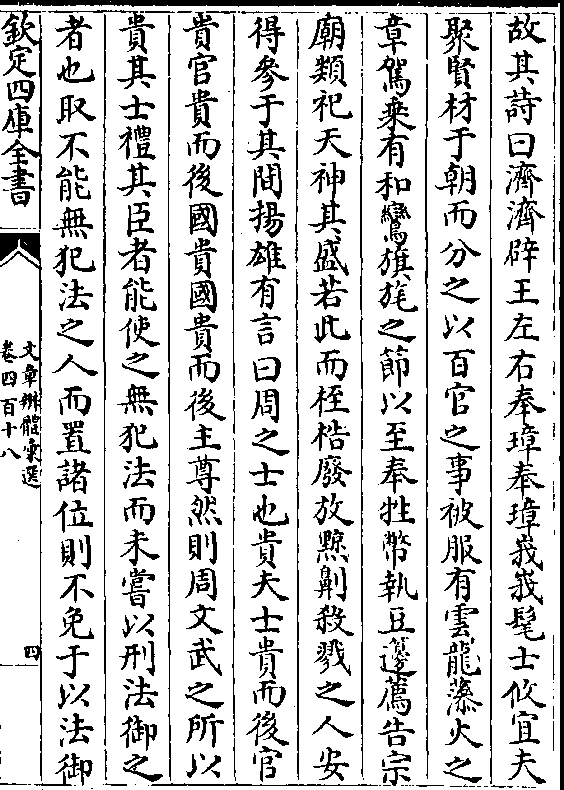 故其詩曰濟濟辟王左右奉璋奉璋峩峩髦士攸宜夫
聚賢材于朝而分之以百官之事被服有雲龍藻火之
章駕乗有和鸞旗旄之節以至奉牲幣執豆籩薦告宗
廟類祀天神其盛若此而桎梏廢放黥劓殺戮之人安
得參于其間揚雄有言曰周之士也貴夫士貴而後官
貴官貴而後國貴國貴而後主尊然則周文武之所以
貴其士禮其臣者能使之無犯法而未嘗以刑法御之
者也取不能無犯法之人而置諸位則不免于以法御
欽定四庫全書
文章辨體彚選
卷四百十八
四